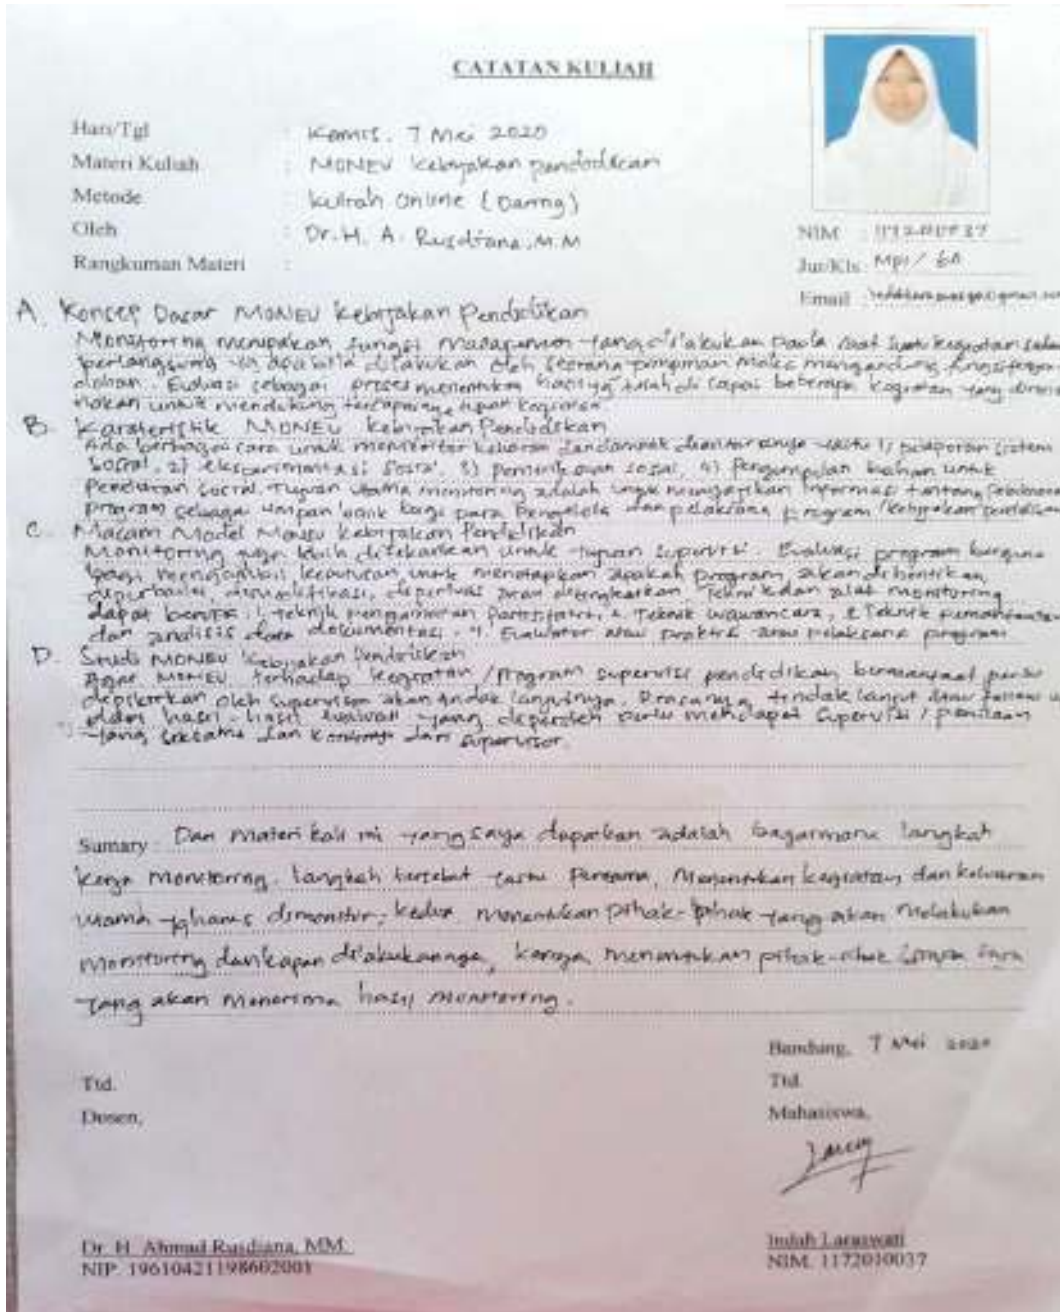 CATATAN KULIAH
Hari/Tgl : Kamis, 7 Mei 2020
Materi Kuliah : MONEV Kebijakan pendidikan
Metode : Kuliah Online (Daring)
Oleh : Dr. H. A. Rusdiana, M.M
Rangkuman Materi :
NIM :
Jur/Kls : MPI /
Email :
A. Konsep Dasar MONEV Kebijakan Pendidikan
Monitoring merupakan fungsi manajemen yang dilakukan pada saat suatu kegiatan
berlangsung apabila dilakukan oleh seorang pimpinan maka mengandung
Evaluasi sebagai proses menentukan hasil yg telah di capai beberapa kegiatan yang
untuk mendukung tercapainya tujuan kegiatan.
B. Karateristik MONEV Kebijakan Pendidikan
Ada berbagai cara untuk memonitor keluaran dan dampak diantaranya yaitu 1) sistem
Sosial, 2) eksperimentasi sosial, 3) pemeriksaan sosial, 4) Pengumpulan bahan untuk
sosial. Tujuan utama monitoring adalah untuk menyajikan informasi tentang
program sebagai umpan balik bagi para pengelola dan pelaksana program / kebijakan pendidikan
C. Macam Model Monev Kebijakan Pendidikan
Monitoring juga lebih ditekankan untuk tujuan supervisi. Evaluasi program berguna
bagi mengambil keputusan untuk menetapkan apakah program akan dihentikan,
diperbaiki, dimodifikasi, diperluas atau ditingkatkan. Teknik dan alat monitoring
dapat 1. teknik pengamatan partisipatif, 2. Teknik wawancara, Teknik
dan analisis data dokumentasi. 4. Evaluator atau praktisi atau pelaksana program
D. Studi MONEV Kebijakan Pendidikan
Agar MONEV terhadap kegiatan / program supervisi pendidikan bermanfaat perlu
dipikirkan oleh supervisor akan tindak lanjutnya. tindak lanjut atau
hasil-hasil evaluasi yang diperoleh perlu mendapat supervisi / penilaian
yang seksama dan dari supervisor.
Sumary : Dari Materi kali ini yang saya dapatkan adalah bagaimana langkah
kerja monitoring. langkah tersebut yaitu Pertama, Menentukan kegiatan dan keluaran
utama yg harus dimonitor, kedua menentukan pihak-pihak yang akan Melakukan
monitoring dan kapan dilakukannya, menentukan pihak-pihak
yang akan Menerima hasil monitoring.
Bandung, 7 Mei 2020
Ttd. Ttd.
Dosen, Mahasiswa,
Dr. H. Ahmad Rusdiana, MM. Indah Laraswati
NIP. 19610421198602001 NIM. 1172010037